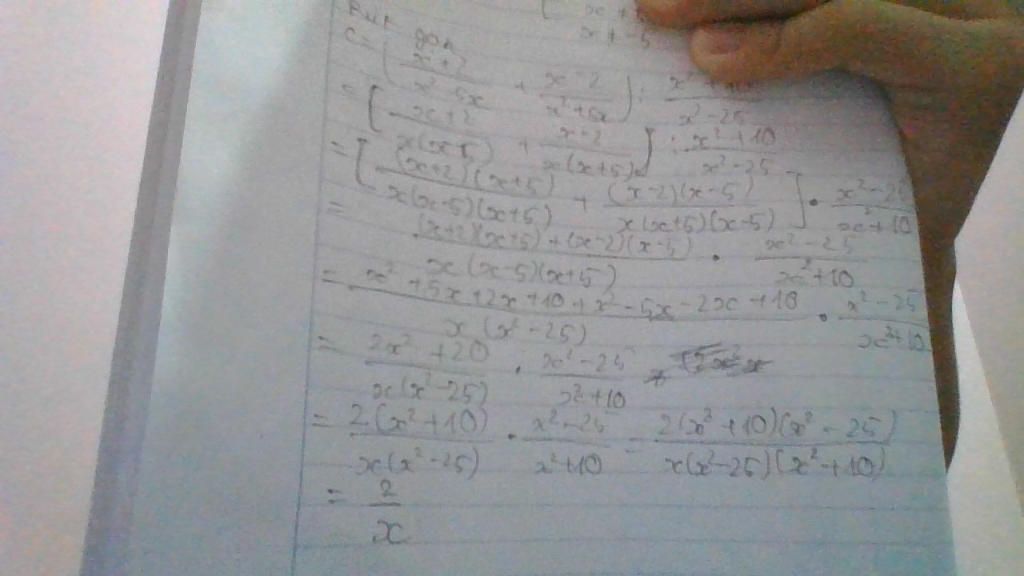 [ x +
x + -5
Rút gọn
C = ( x+2 / x² - 5x + x-2 / x² + 5x ) : x² + 10 / x² - 25
= [ x+2 / x(x-5) + x-2 / x(x+5) ] : x² + 10 / x² - 25
= [ (x+2)(x+5) / x(x-5)(x+5) + (x-2)(x-5) / x(x+5)(x-5) ] . x² - 25 / x² + 10
= (x+2)(x+5) + (x-2)(x-5) / x(x-5)(x+5) . x² - 25 / x² + 10
= x² + 5x + 2x + 10 + x² - 5x - 2x + 10 / x(x² - 25) . x² - 25 / x² + 10
= 2x² + 20 / x(x² - 25) . x² - 25 / x² + 10
= 2(x² + 10) / x(x² - 25) . x² - 25 / x² + 10 = 2(x² + 10)(x² - 25) / x(x² - 25)(x² + 10)
= 2 / x